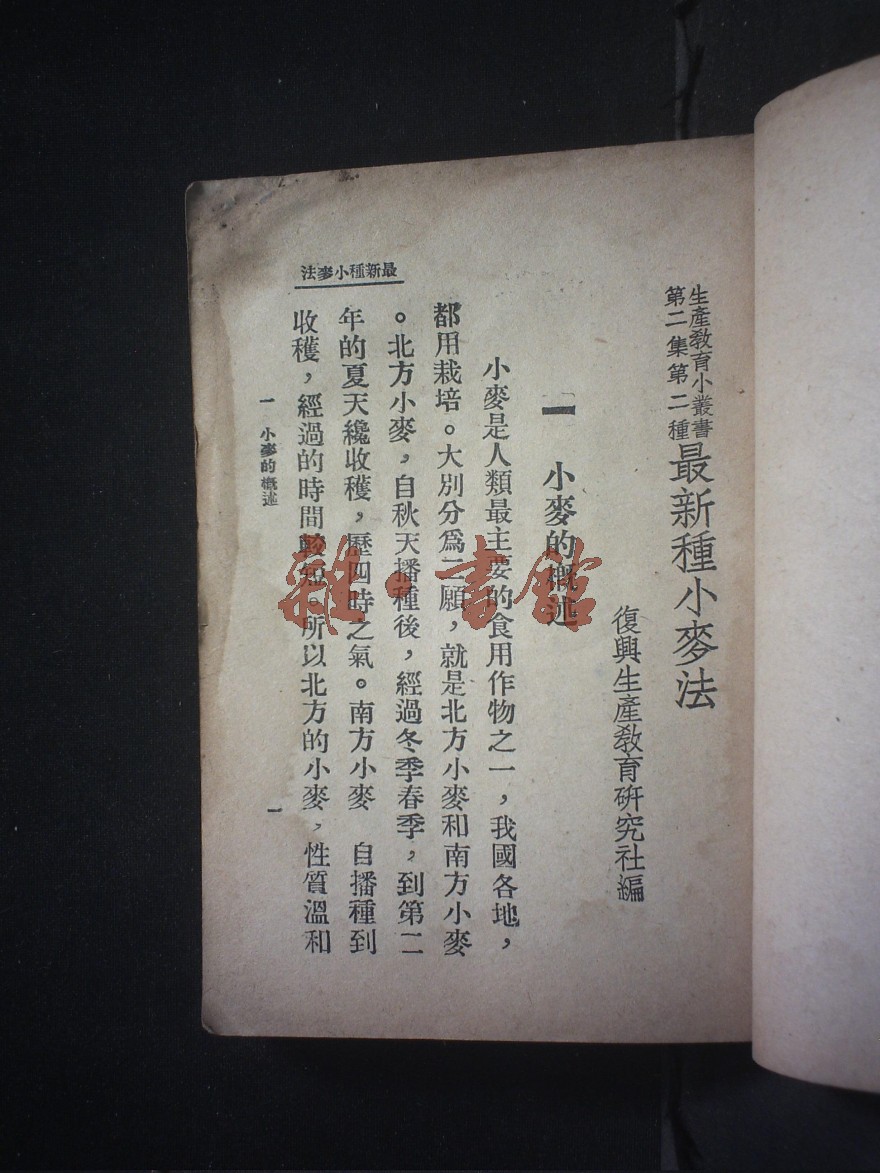 生產教育小叢書
第二集第二種
最新種小麥法
復興生產教育研究社編
一 小麥的概述
小麥是人類最主要的食用作物之一，我國各地，
都用栽培。大別分爲二願，就是北方小麥和南方小麥
。北方小麥，自秋天播種後，經過冬季春季，到第二
年的夏天纔收穫，歷四時之氣。南方小麥 自播種到
收穫，經過的時間較短。所以北方的小麥，性質溫和
最新種小麥法
一 小麥的概述
一
雜·書館